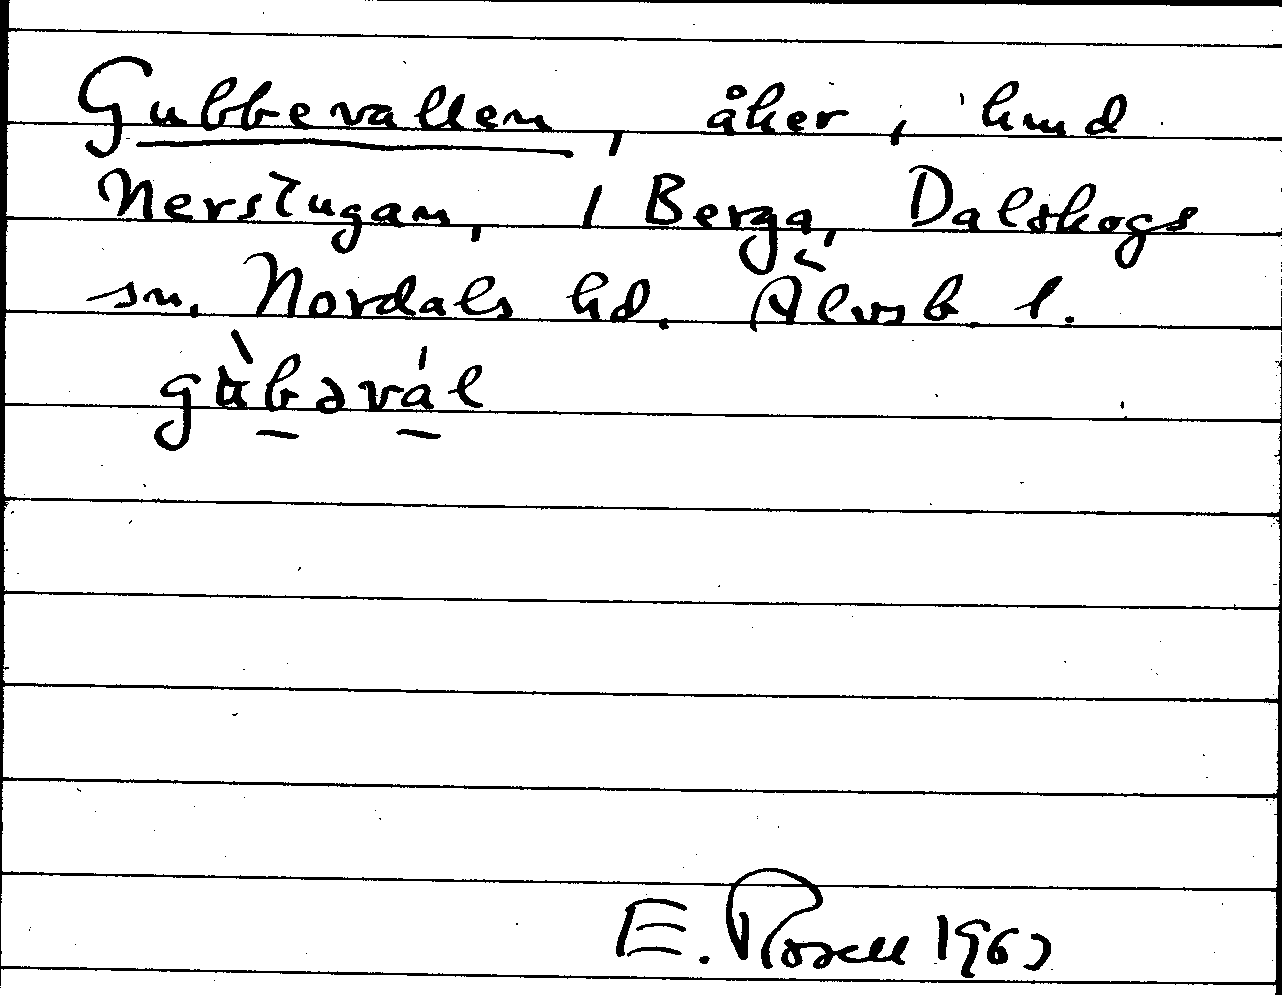 Gubbevallen, åker, hmd
Nerstugan, 1 Berga, Dalskogs
sn. Nordals hd. Älvsb. l.
gu̇̀bəvál
E. Rosell 1967